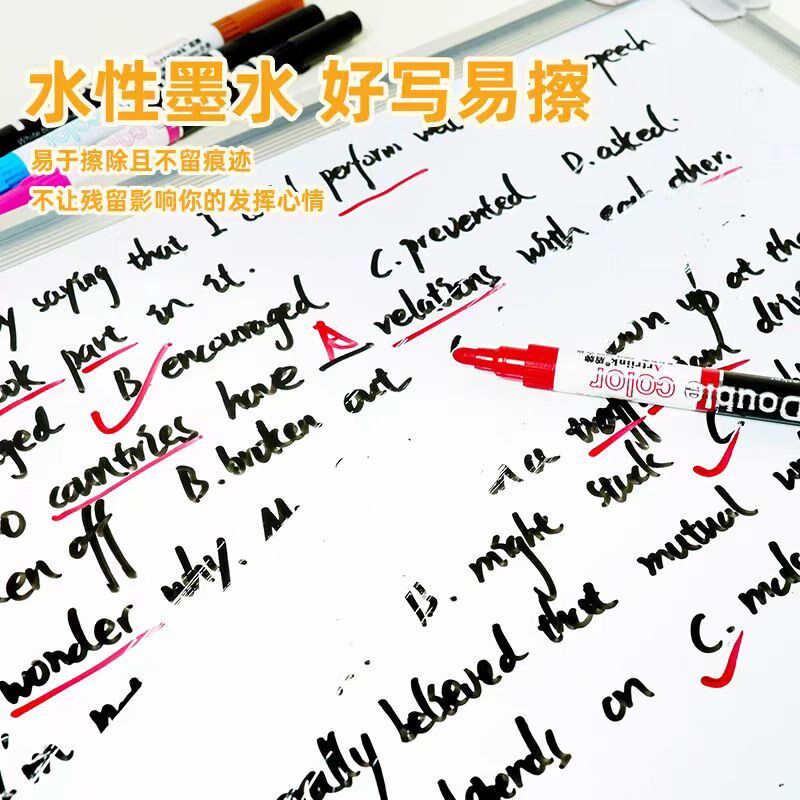 水性墨水 好写易擦
易于擦除且不留痕迹
不让残留影响你的发挥心情
speech
y saying that I perform
D. asked.
ook part in it.
C. prevented
B encouraged
relations with each other.
own up at the
A
countries have
B. broken out
Artrink
Double color
en off
why.
stuck
C.
B. might
mutual
wonder
I'm
believed that
C.
on